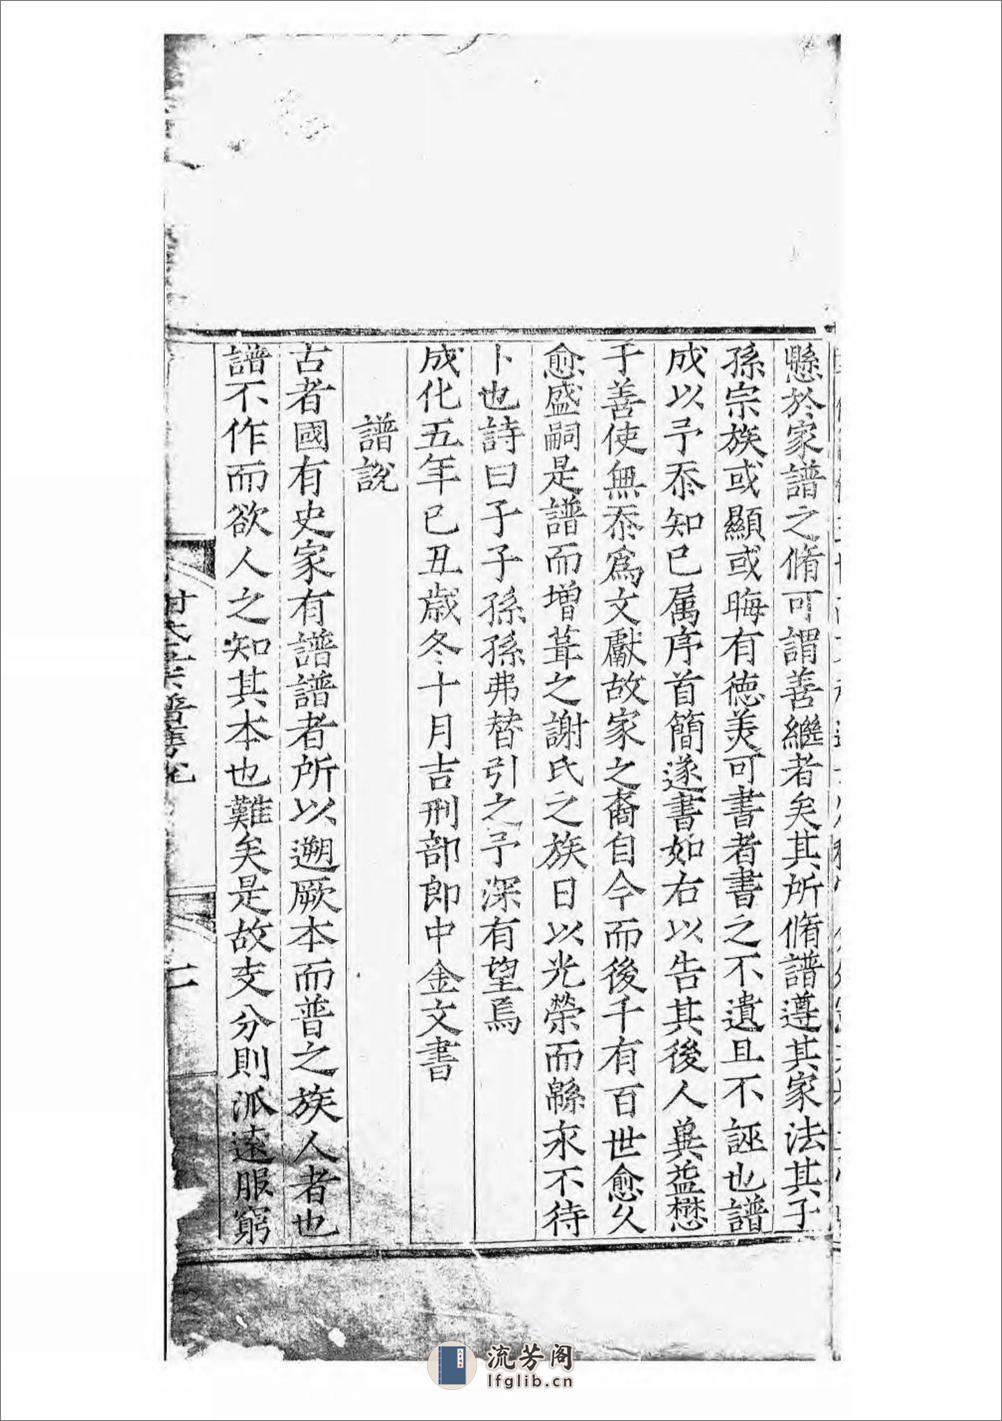 懸於家譜之脩可謂善繼者矣其所脩譜遵其家法其子
孫宗族或顯或晦有德美可書者書之不遺且不誣也譜
成以予忝知己属序首簡遂書如右以告其後人冀益懋
于善使無忝爲文獻故家之裔自今而後千有百世愈久
愈盛嗣是譜而增葺之謝氏之族日以光榮而緜永不待
卜也詩曰子子孫孫弗替引之予深有望焉
成化五年己丑歲冬十月吉刑部郎中金文書
譜説
古者國有史家有譜譜者所以遡厥本而普之族人者也
譜不作而欲人之知其本也難矣是故支分則派遠服窮
流芳阁
lfglib.cn